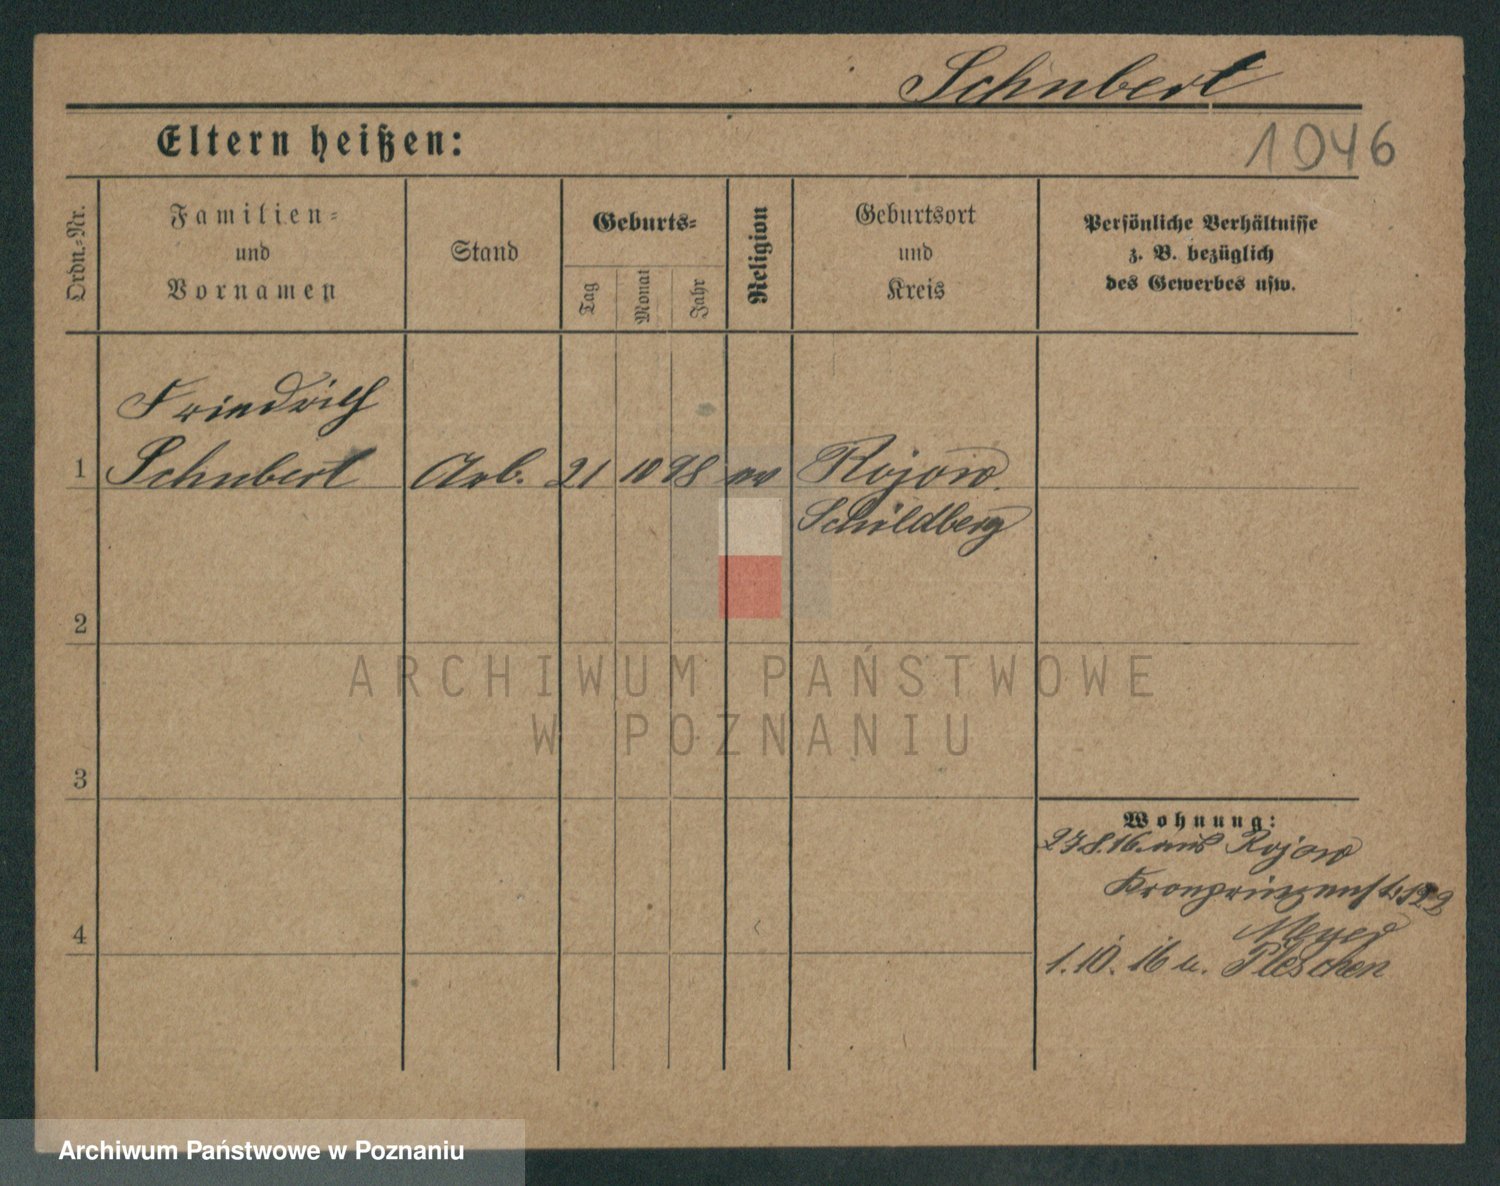 Schubert
Eltern heißen:
1046
Ordn.-Nr.
Familien-
und
Vornamen
Stand
Geburts-
Tag
Monat
Jahr
Religion
Geburtsort
und
Kreis
Persönliche Verhältnisse
z. B. bezüglich
des Gewerbes usw.
Friedrich
1 Schubert Arb. 21 10 98 ev Rojow
Schildberg
2
ARCHIWUM PAŃSTWOWE
W POZNANIU
3
Wohnung:
27.8.16. aus Rojow
Kronprinzenstr
4
Meyer
1.10.16 u. Pleschen
Archiwum Państwowe w Poznaniu